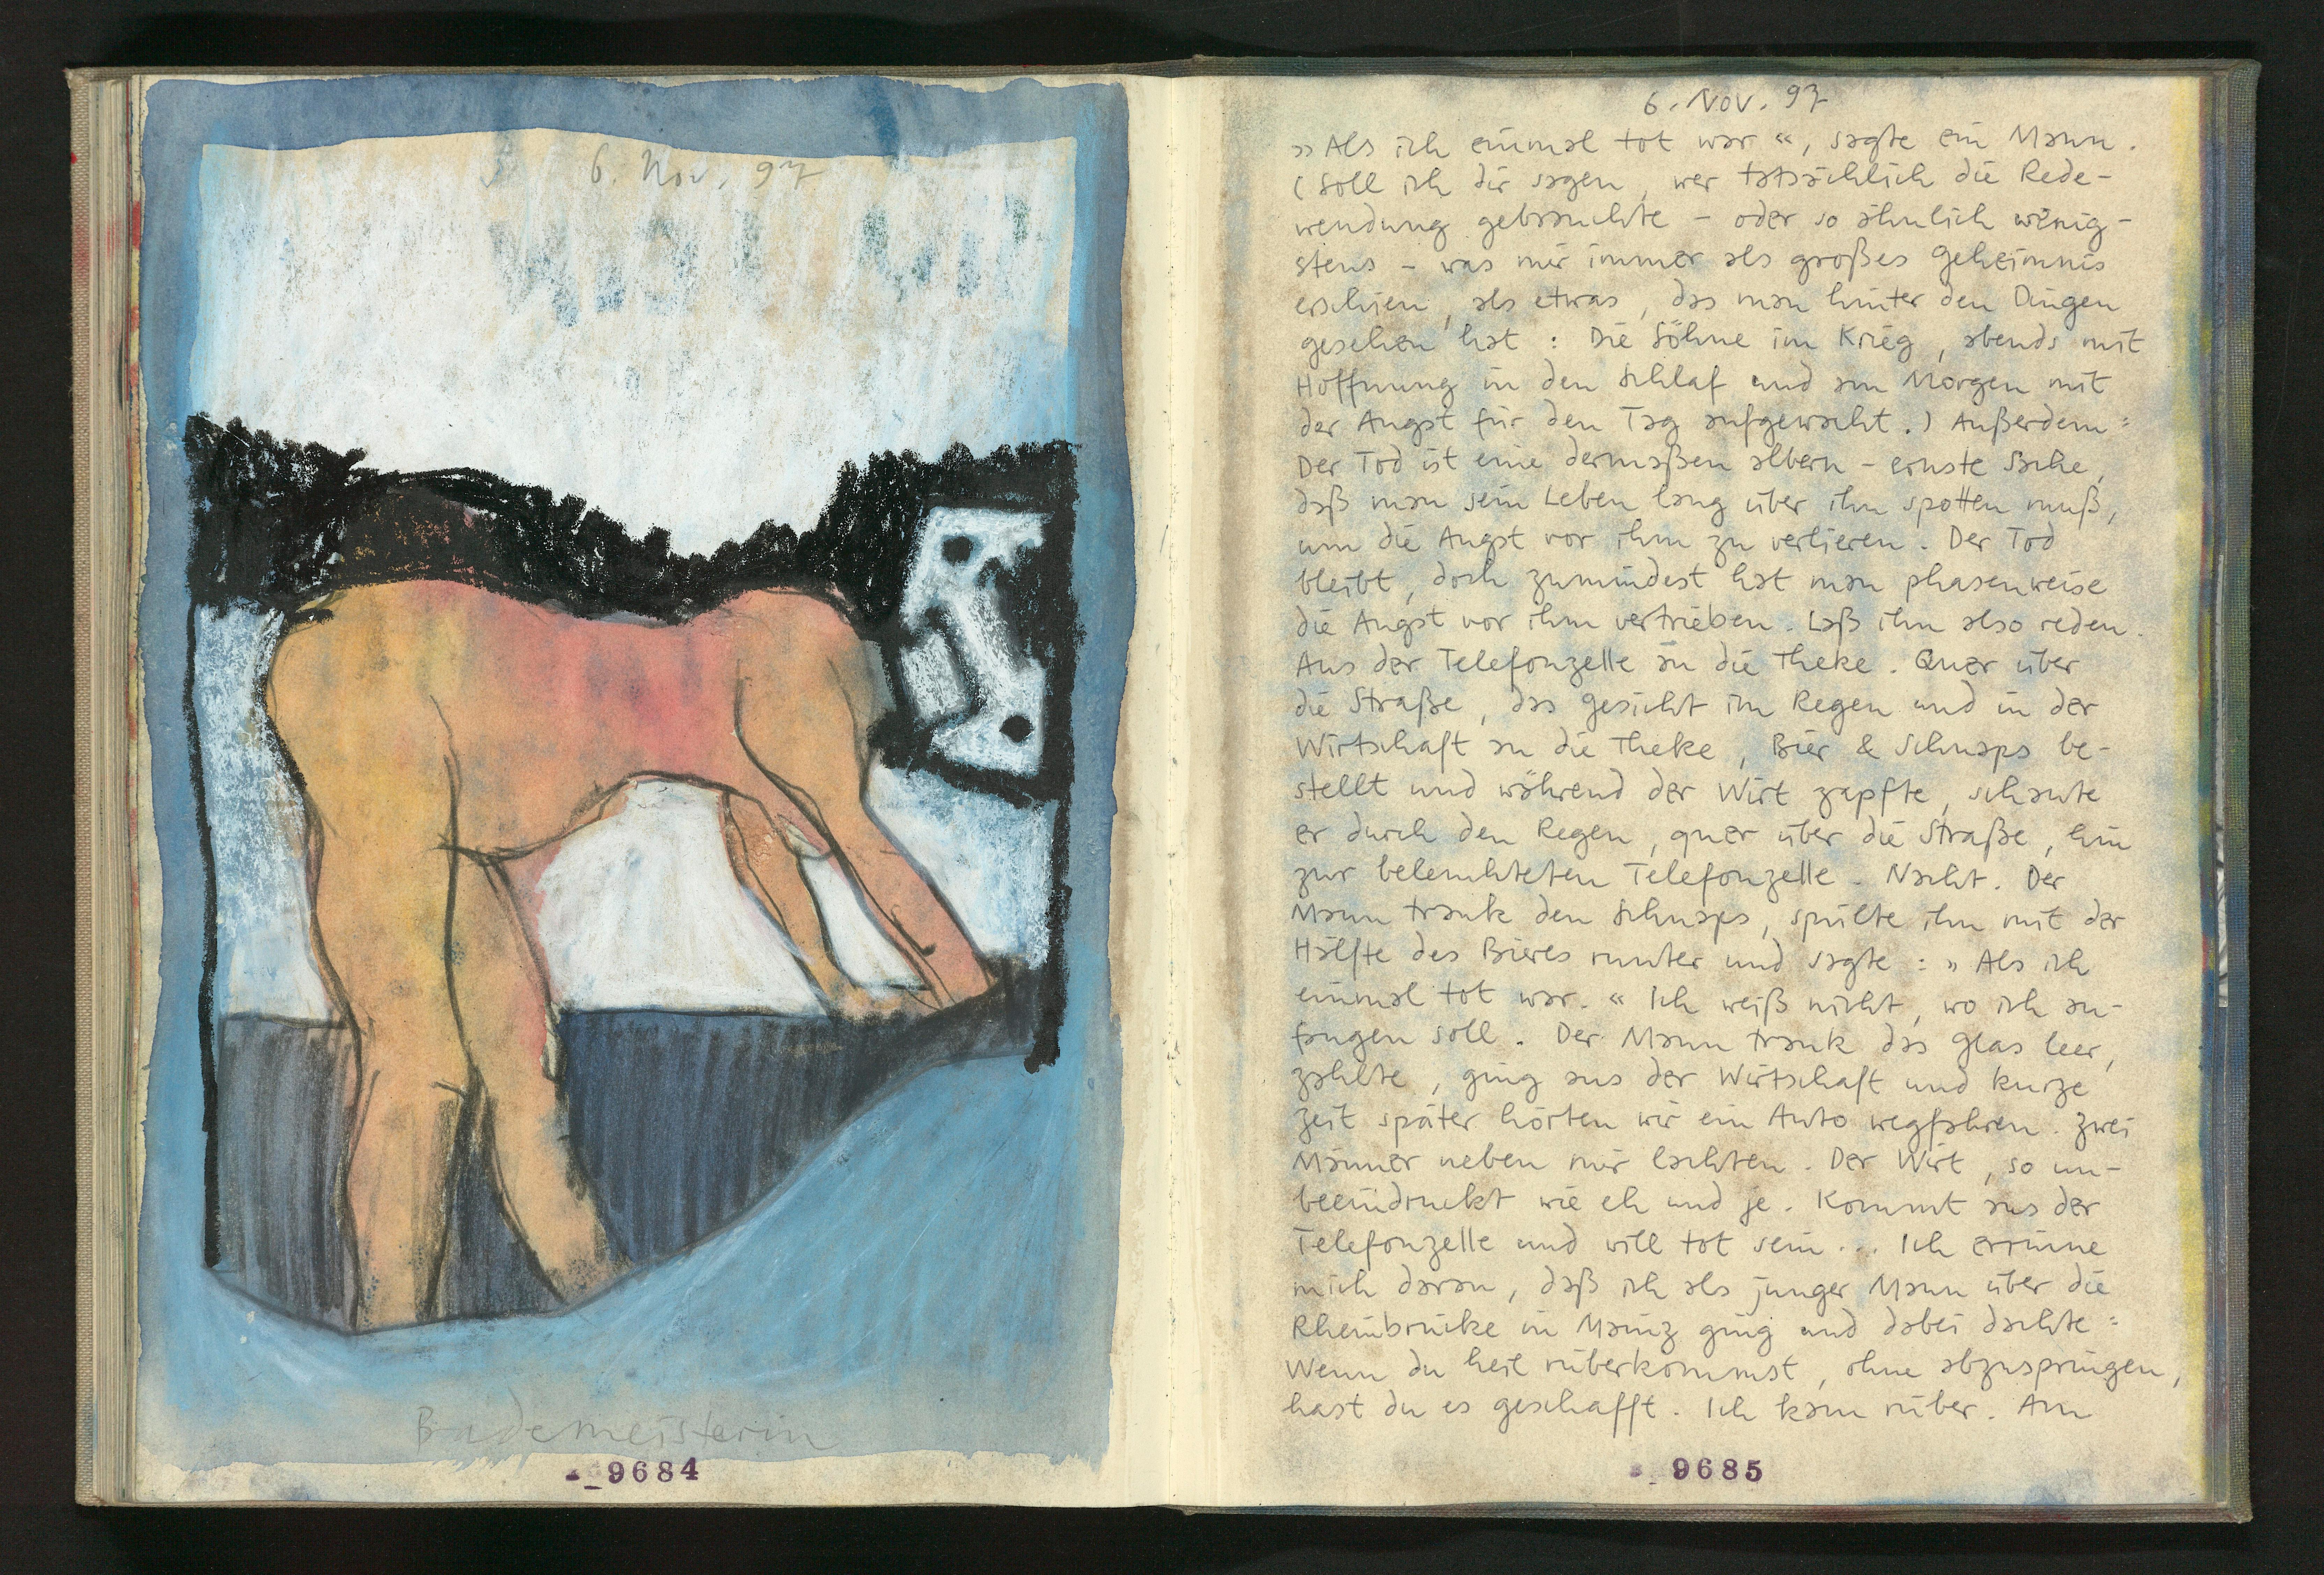 6. Nov. 97
Bademeisterin
9684
6. Nov. 97
»Als ich einmal tot war«, sagte ein Mann.
(Soll ich dir sagen, wer tatsächlich die Rede-
wendung gebrauchte - oder so ähnlich wenig-
stens - was mir immer als großes Geheimnis
erschien, als etwas, das man hinter den Dingen
gesehen hat: Die Söhne im Krieg, abends mit
Hoffnung in den Schlaf und am Morgen mit
der Angst für den Tag aufgewacht.) Außerdem:
Der Tod ist eine dermaßen albern-ernste Sache,
daß man sein Leben lang über ihn spotten muß,
um die Angst vor ihm zu verlieren. Der Tod
bleibt, doch zumindest hat man phasenweise
die Angst vor ihm vertrieben. Laß ihn also reden.
Aus der Telefonzelle an die Theke. Quer über
die Straße, das Gesicht im Regen und in der
Wirtschaft an die Theke, Bier & Schnaps be-
stellt und während der Wirt zapfte, schaute
er durch den Regen, quer über die Straße, hin
zur beleuchteten Telefonzelle. Nacht. Der
Mann trank den Schnaps, spülte ihn mit der
Hälfte des Bieres runter und sagte: »Als ich
einmal tot war.« Ich weiß nicht, wo ich an-
fangen soll. Der Mann trank das Glas leer,
zahlte, ging aus der Wirtschaft und kurze
Zeit später hörten wir ein Auto wegfahren. Zwei
Männer neben mir lachten. Der Wirt, so un-
beeindruckt wie eh und je. Kommt aus der
Telefonzelle und will tot sein... Ich erinne
mich daran, daß ich als junger Mann über die
Rheinbrücke in Mainz ging und dabei dachte:
Wenn du heil rüberkommst, ohne abzuspringen,
hast du es geschafft. Ich kam rüber. Am
9685